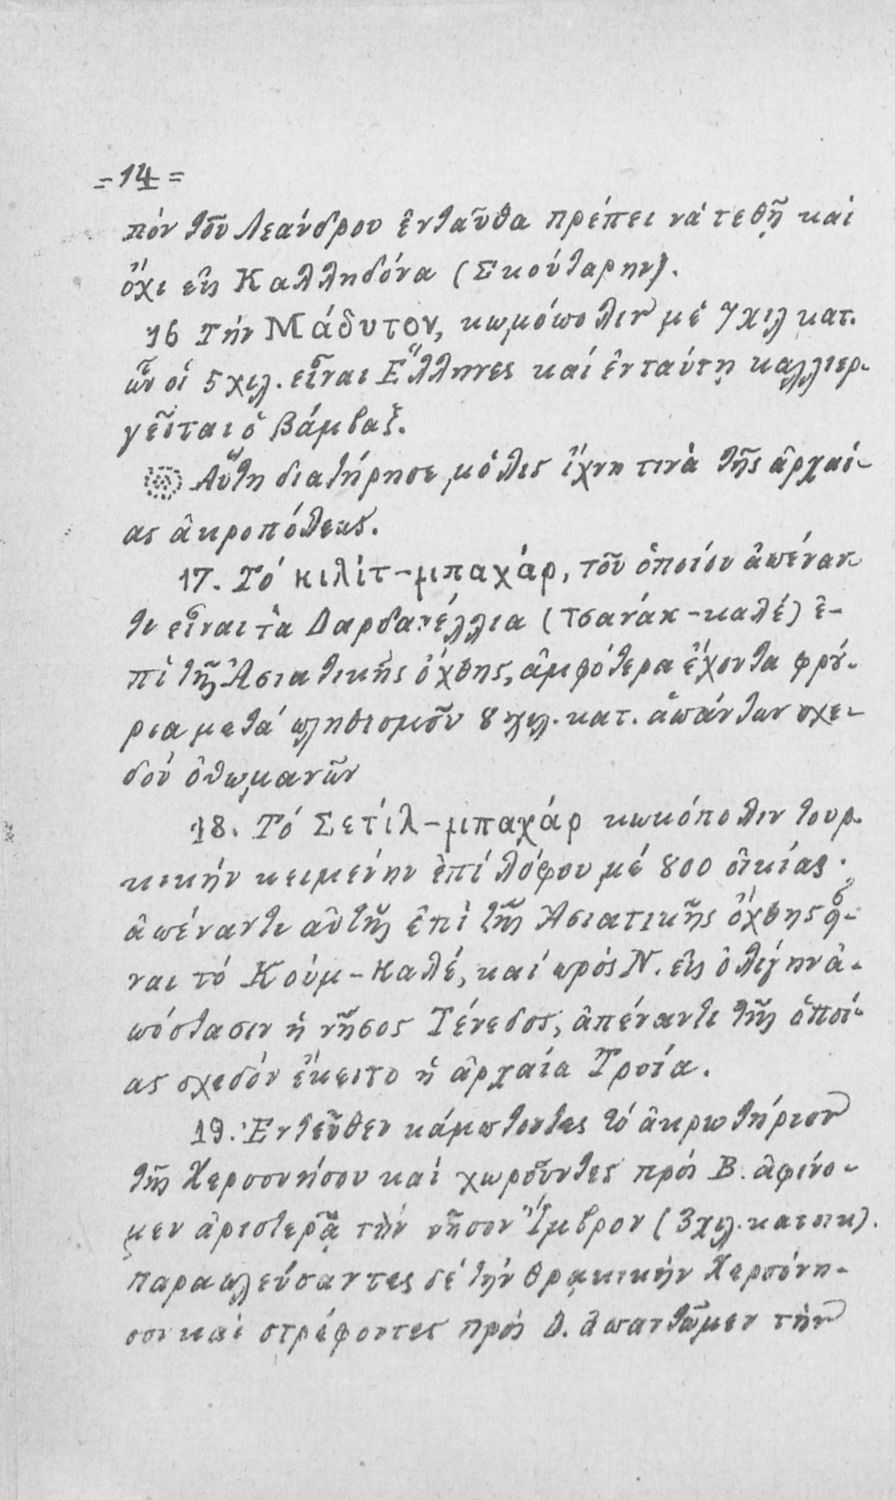 =14=
πόν τοῦ Λεάνδρου ἐνταῦθα πρέπει νά τεθῇ καί
ὄχι εἰς Καλληδόνα (Σκούταρην).
16 Τήν Μάδυτον, κωμόπολιν μέ 7χιλ κατ.
ὧν οἱ 5χιλ. εἶναι Ἕλληνες καί ἐνταύτῃ καλλιερ-
γεῖται ὁ βάμβαξ.
Αὕτη διατήρησε μόλις ἴχνη τινὰ τῆς ἀρχαί-
ας ἀκροπόλεως.
17. Τό κιλίτ-μπαχάρ, τοῦ ὁποίου ἀπέναν
τι εἶναι τὰ Δαρδανέλλια (τσανάκ-καλέ) ἐ-
πὶ τῆς Ἀσιατικῆς ὄχθης, ἀμφότερα ἔχοντα φρού-
ρια μετά πληθισμοῦ 8 χιλ. κατ. ἁπάντων σχε-
δόν ὀθωμανῶν
18. Τό Σετίλ-μπαχάρ κωκόπολιν τουρ-
κικήν κειμένην ἐπί λόφου μέ 800 οἰκίας·
ἀπέναντι αὐτῆς ἐπὶ τῆς Ἀσιατικῆς ὄχθης εἶ-
ναι τό Κούμ-Καλέ, καί πρός Ν. εἰς ὀλίγην ἀ-
πόστασιν ἡ νῆσος Τένεδος, ἀπέναντι τῆς ὁποί-
ας σχεδόν ἔκειτο ἡ ἀρχαία Τροία.
19. Ἐντεῦθεν κάμπτοντες τό ἀκρωτήριον
τῆς Χερσοννήσου καί χωροῦντες πρός Β. ἀφίνο-
μεν ἀριστερᾷ τὴν νῆσον Ἴμβρον (3χιλ. κατοικ).
παραπλεύσαντες δέ τήν Θρακικήν Χερσόνη-
σον καὶ στρέφοντες πρός Δ. ἀπαντῶμεν τὴν